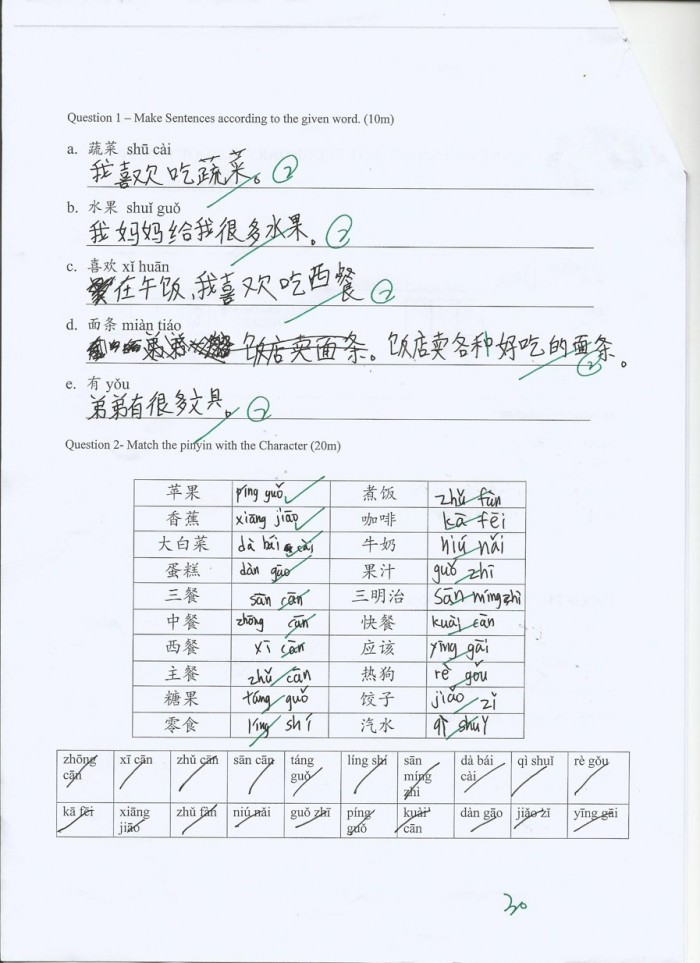 Question 1 – Make Sentences according to the given word. (10m)
a. 蔬菜 shū cài
我喜欢吃蔬菜。 2
b. 水果 shuǐ guǒ
我妈妈给我很多水果。 2
c. 喜欢 xǐ huān
在午饭,我喜欢吃西餐 2
d. 面条 miàn tiáo
弟弟 饭店卖面条。饭店卖各种好吃的面条。 2
e. 有 yǒu
弟弟有很多文具。 2
Question 2- Match the pinyin with the Character (20m)
苹果 píng guǒ 煮饭 zhǔ fàn
香蕉 xiāng jiāo 咖啡 kā fēi
大白菜 dà bái cài 牛奶 niú nǎi
蛋糕 dàn gāo 果汁 guǒ zhī
三餐 sān cān 三明治 sān míng zhì
中餐 zhōng cān 快餐 kuài cān
西餐 xī cān 应该 yīng gāi
主餐 zhǔ cān 热狗 rè gǒu
糖果 táng guǒ 饺子 jiǎo zǐ
零食 líng shí 汽水 qì shuǐ
zhōng cān xī cān zhǔ cān sān cān táng guǒ líng shí sān míng zhì dà bái cài qì shuǐ rè gǒu
kā fēi xiāng jiāo zhǔ fàn niú nǎi guǒ zhī píng guǒ kuài cān dàn gāo jiǎo zǐ yīng gāi
30